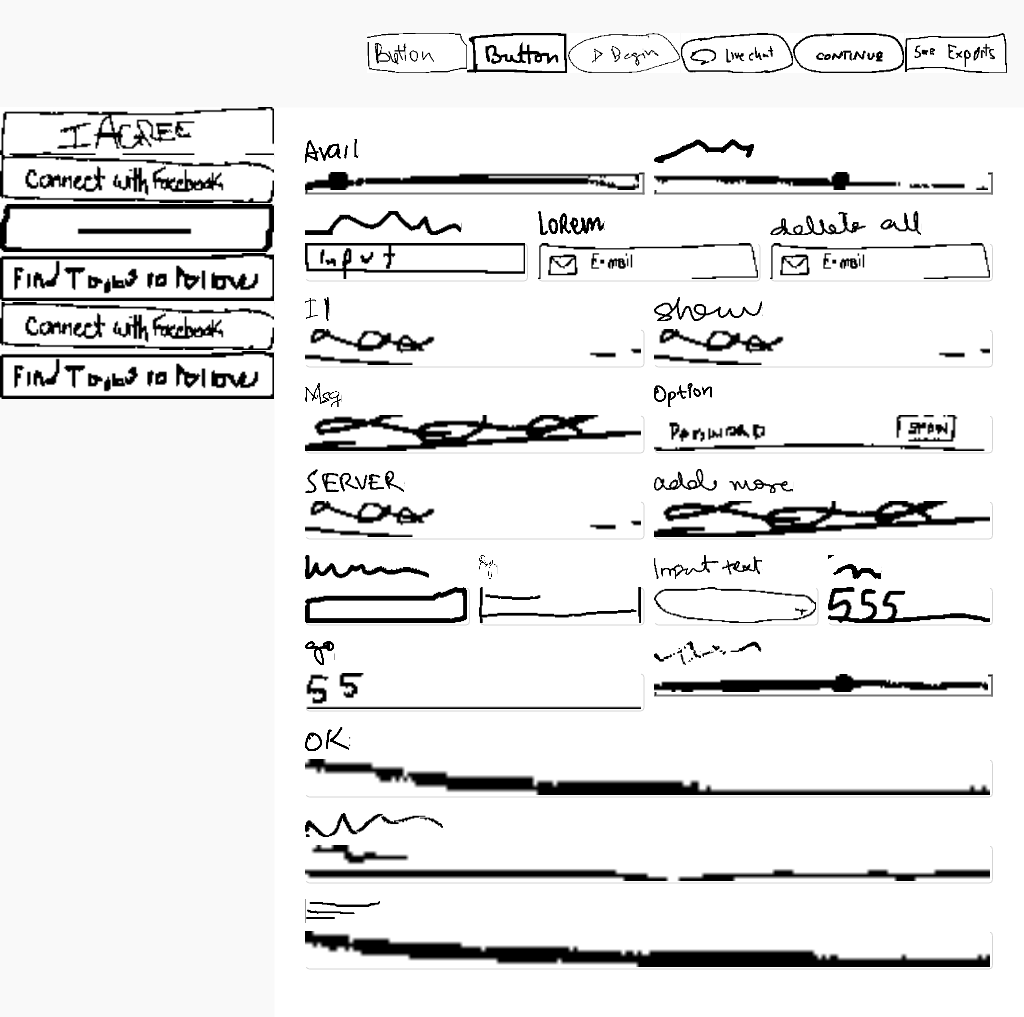 Button Button ▷ Begin Live chat CONTINUE See Exports
I AGREE
Connect with Facebook
Find to Follow
Connect with Facebook
Find to Follow
Avail
Lorem dellete all
Input E-mail E-mail
II show
Msg Option
PASSWORD SHOW
SERVER add more
Input text
555
go
55
OK